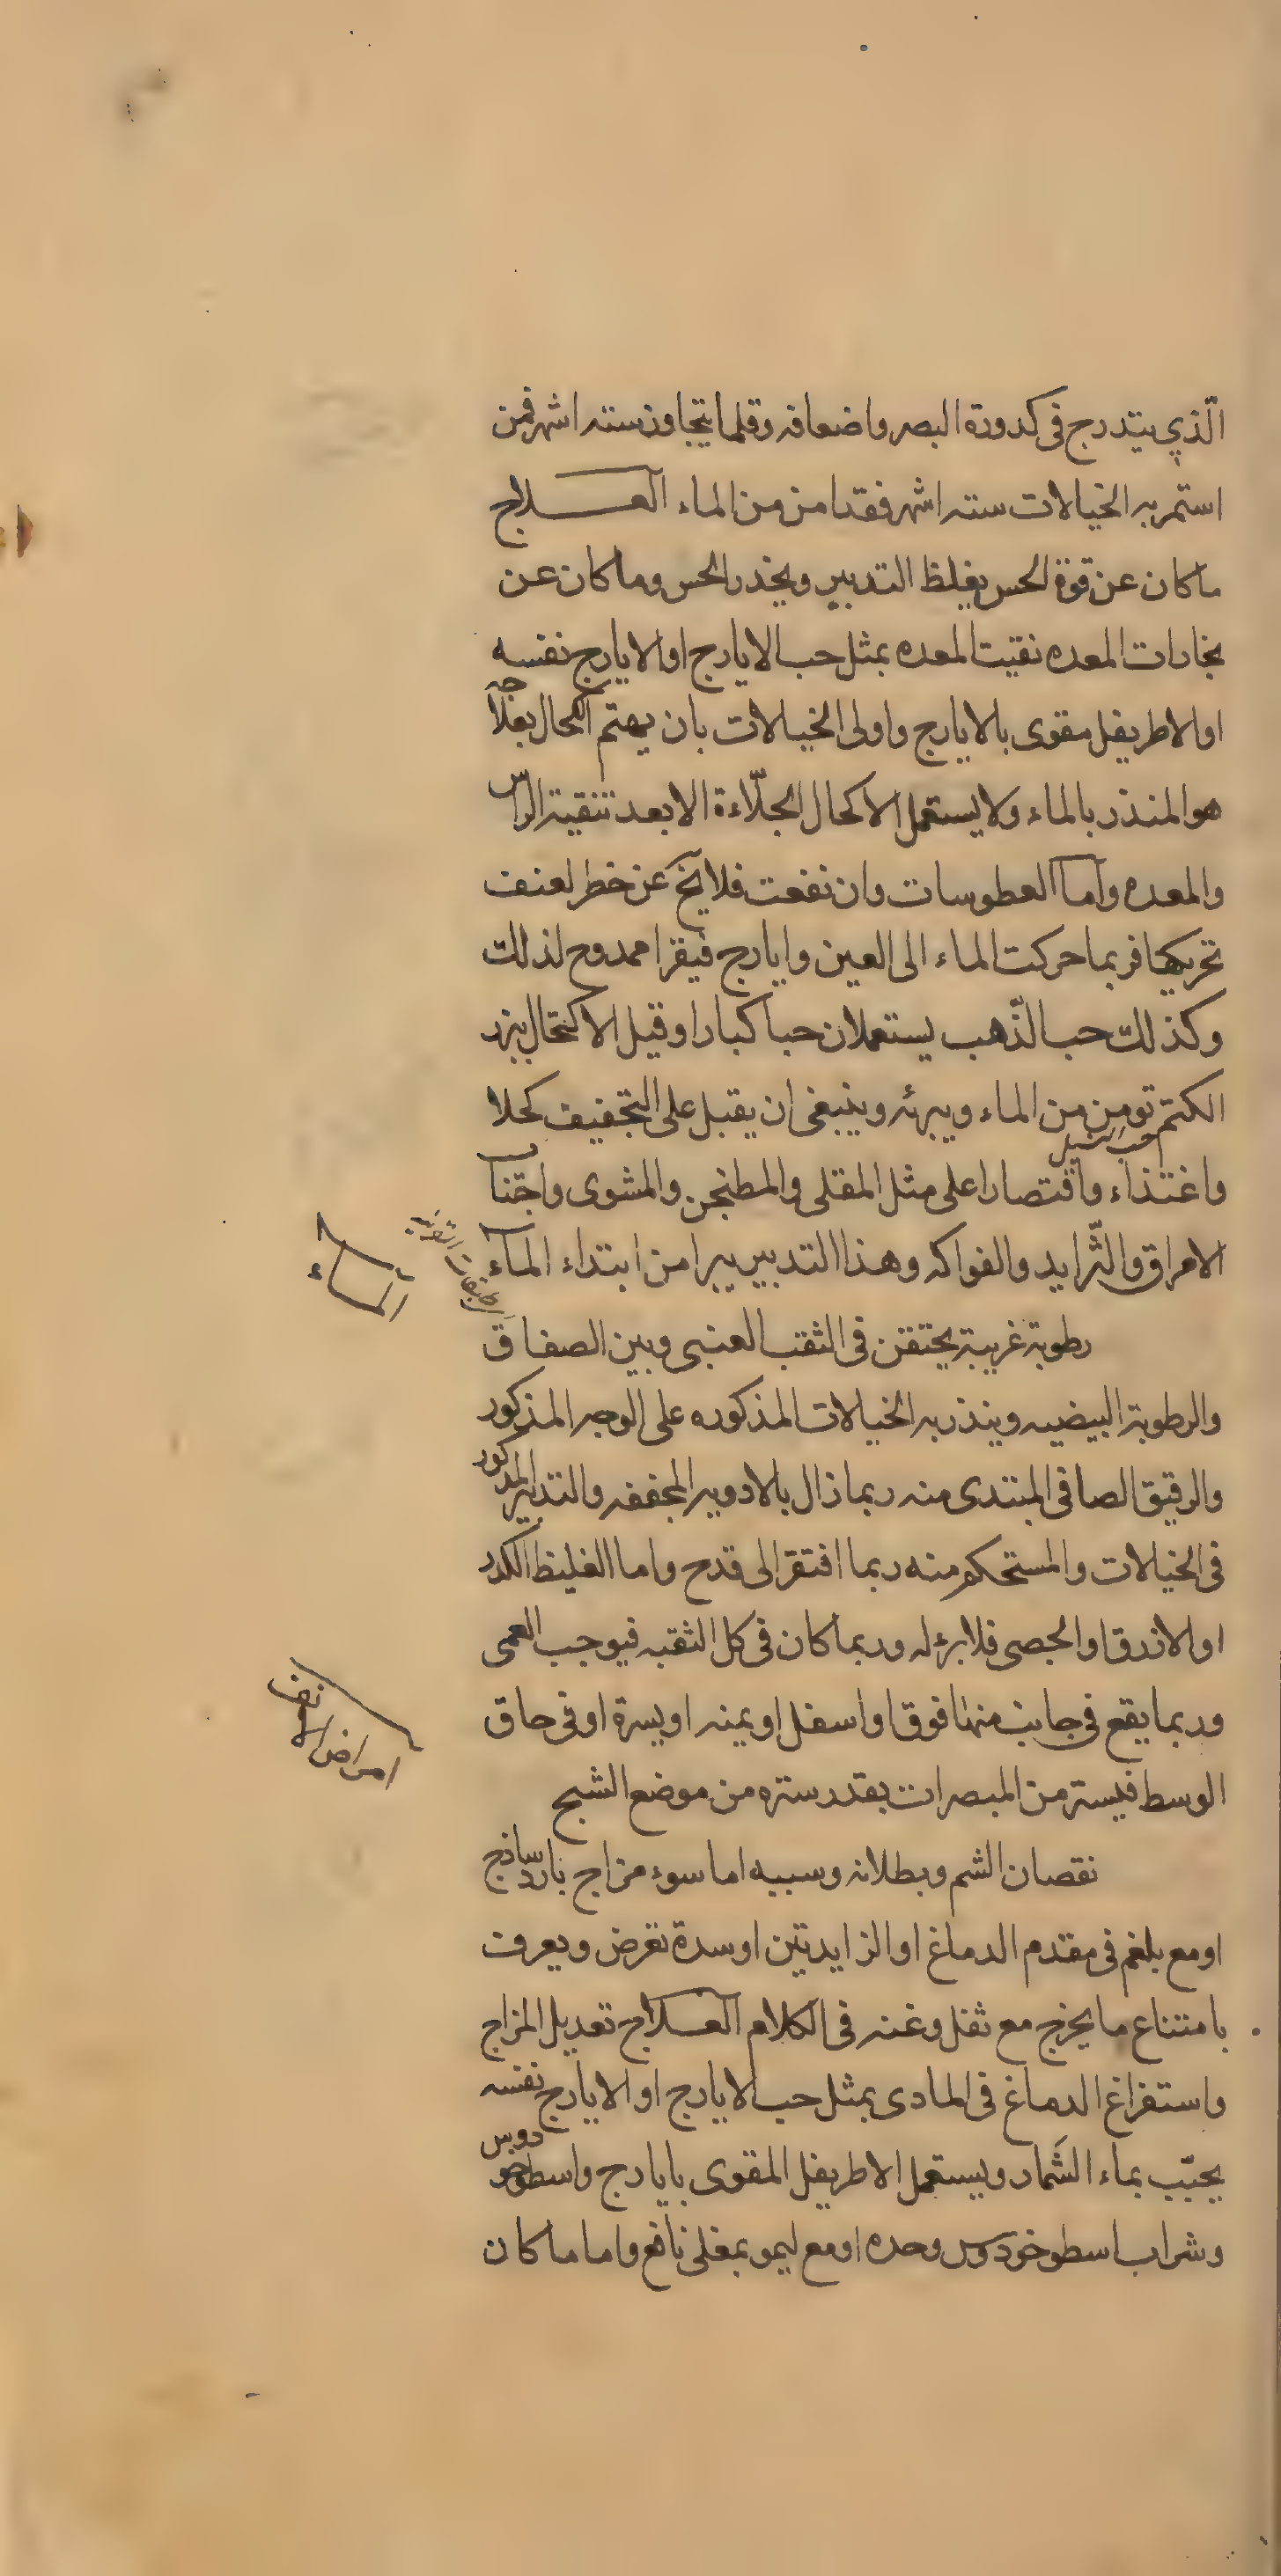 الّذي يتدرج فى كدورة البصر واضعافه وقلما يتجاوز ستة اشهر فمن
استمر به الخيالات ستة اشهر فقد امن من الماء العـــلاج
ما كان عن قوة الحس يغلظ التدبير ويخدر الحس وما كان عن
بخارات المعده نقيت المعده بمثل حب الايارج او الايارج نفسه
او الاطريفل مقوى بالايارج واولى الخيالات بان يهتم الكحال بعلاجه
هو المنذر بالماء ولا يستعمل الاكحال الجلّاءة الا بعد تنقية الراس
والمعده واما العطوسات وان نفعت فلا يخ عن خطر لعنف
تحريكها فربما حركت الماء الى العين وايارج فيقرا ممدوح لذلك
وكذلك حب الذّهب يستعملان حبا كبارا وقيل الاكتحال ببزر
الكتم تومن من الماء ويبرئه وينبغى ان يقبل على التجفيف كحلا
حب النيل
واغتذاء واقتصارا على مثل المقلى والمطنجن والمشوى واجتناب
الامراق والثّرايد والفواكه وهذا التدبير يبرا من ابتداء المآء
المـاء
رطوبة غريبة يحتقن فى الثقب العنبى وبين الصفاق
والرطوبة البيضيه وينذر به الخيالات المذكوره على الوجه المذكور
والرقيق الصافى المبتدى منه ربما زال بالادويه المجففه والتدبير المذكور
فى الخيالات والمستحكم منه ربما افتقر الى قدح واما الغليظ الكدر
او الازرق او الجصى فلا برء له وربما كان فى كل الثقبه فيوجب العمى
وربما يقع فى جانب منها فوق او اسفل او يمنه او يسرة او فى حاق
الوسط فيستر من المبصرات بقدر ستره من موضع الشبح
امراض الانف
نقصان الشم وبطلانه وسببه اما سوء مزاج بارد ساذج
او مع بلغم فى مقدم الدماغ او الزايدتين او سدة تعرض ويعرف
بامتناع ما يخرج مع ثقل وغنه فى الكلام العـلاج تعديل المزاج
واستفراغ الدماغ فى المادى بمثل حب الايارج او الايارج نفسه
يحبّب بماء الشَمار ويستعمل الاطريفل المقوى بايارج واسطوخودوس
وشراب اسطوخودوس وحده او مع ليمو بمغلى نافع واما ما كان